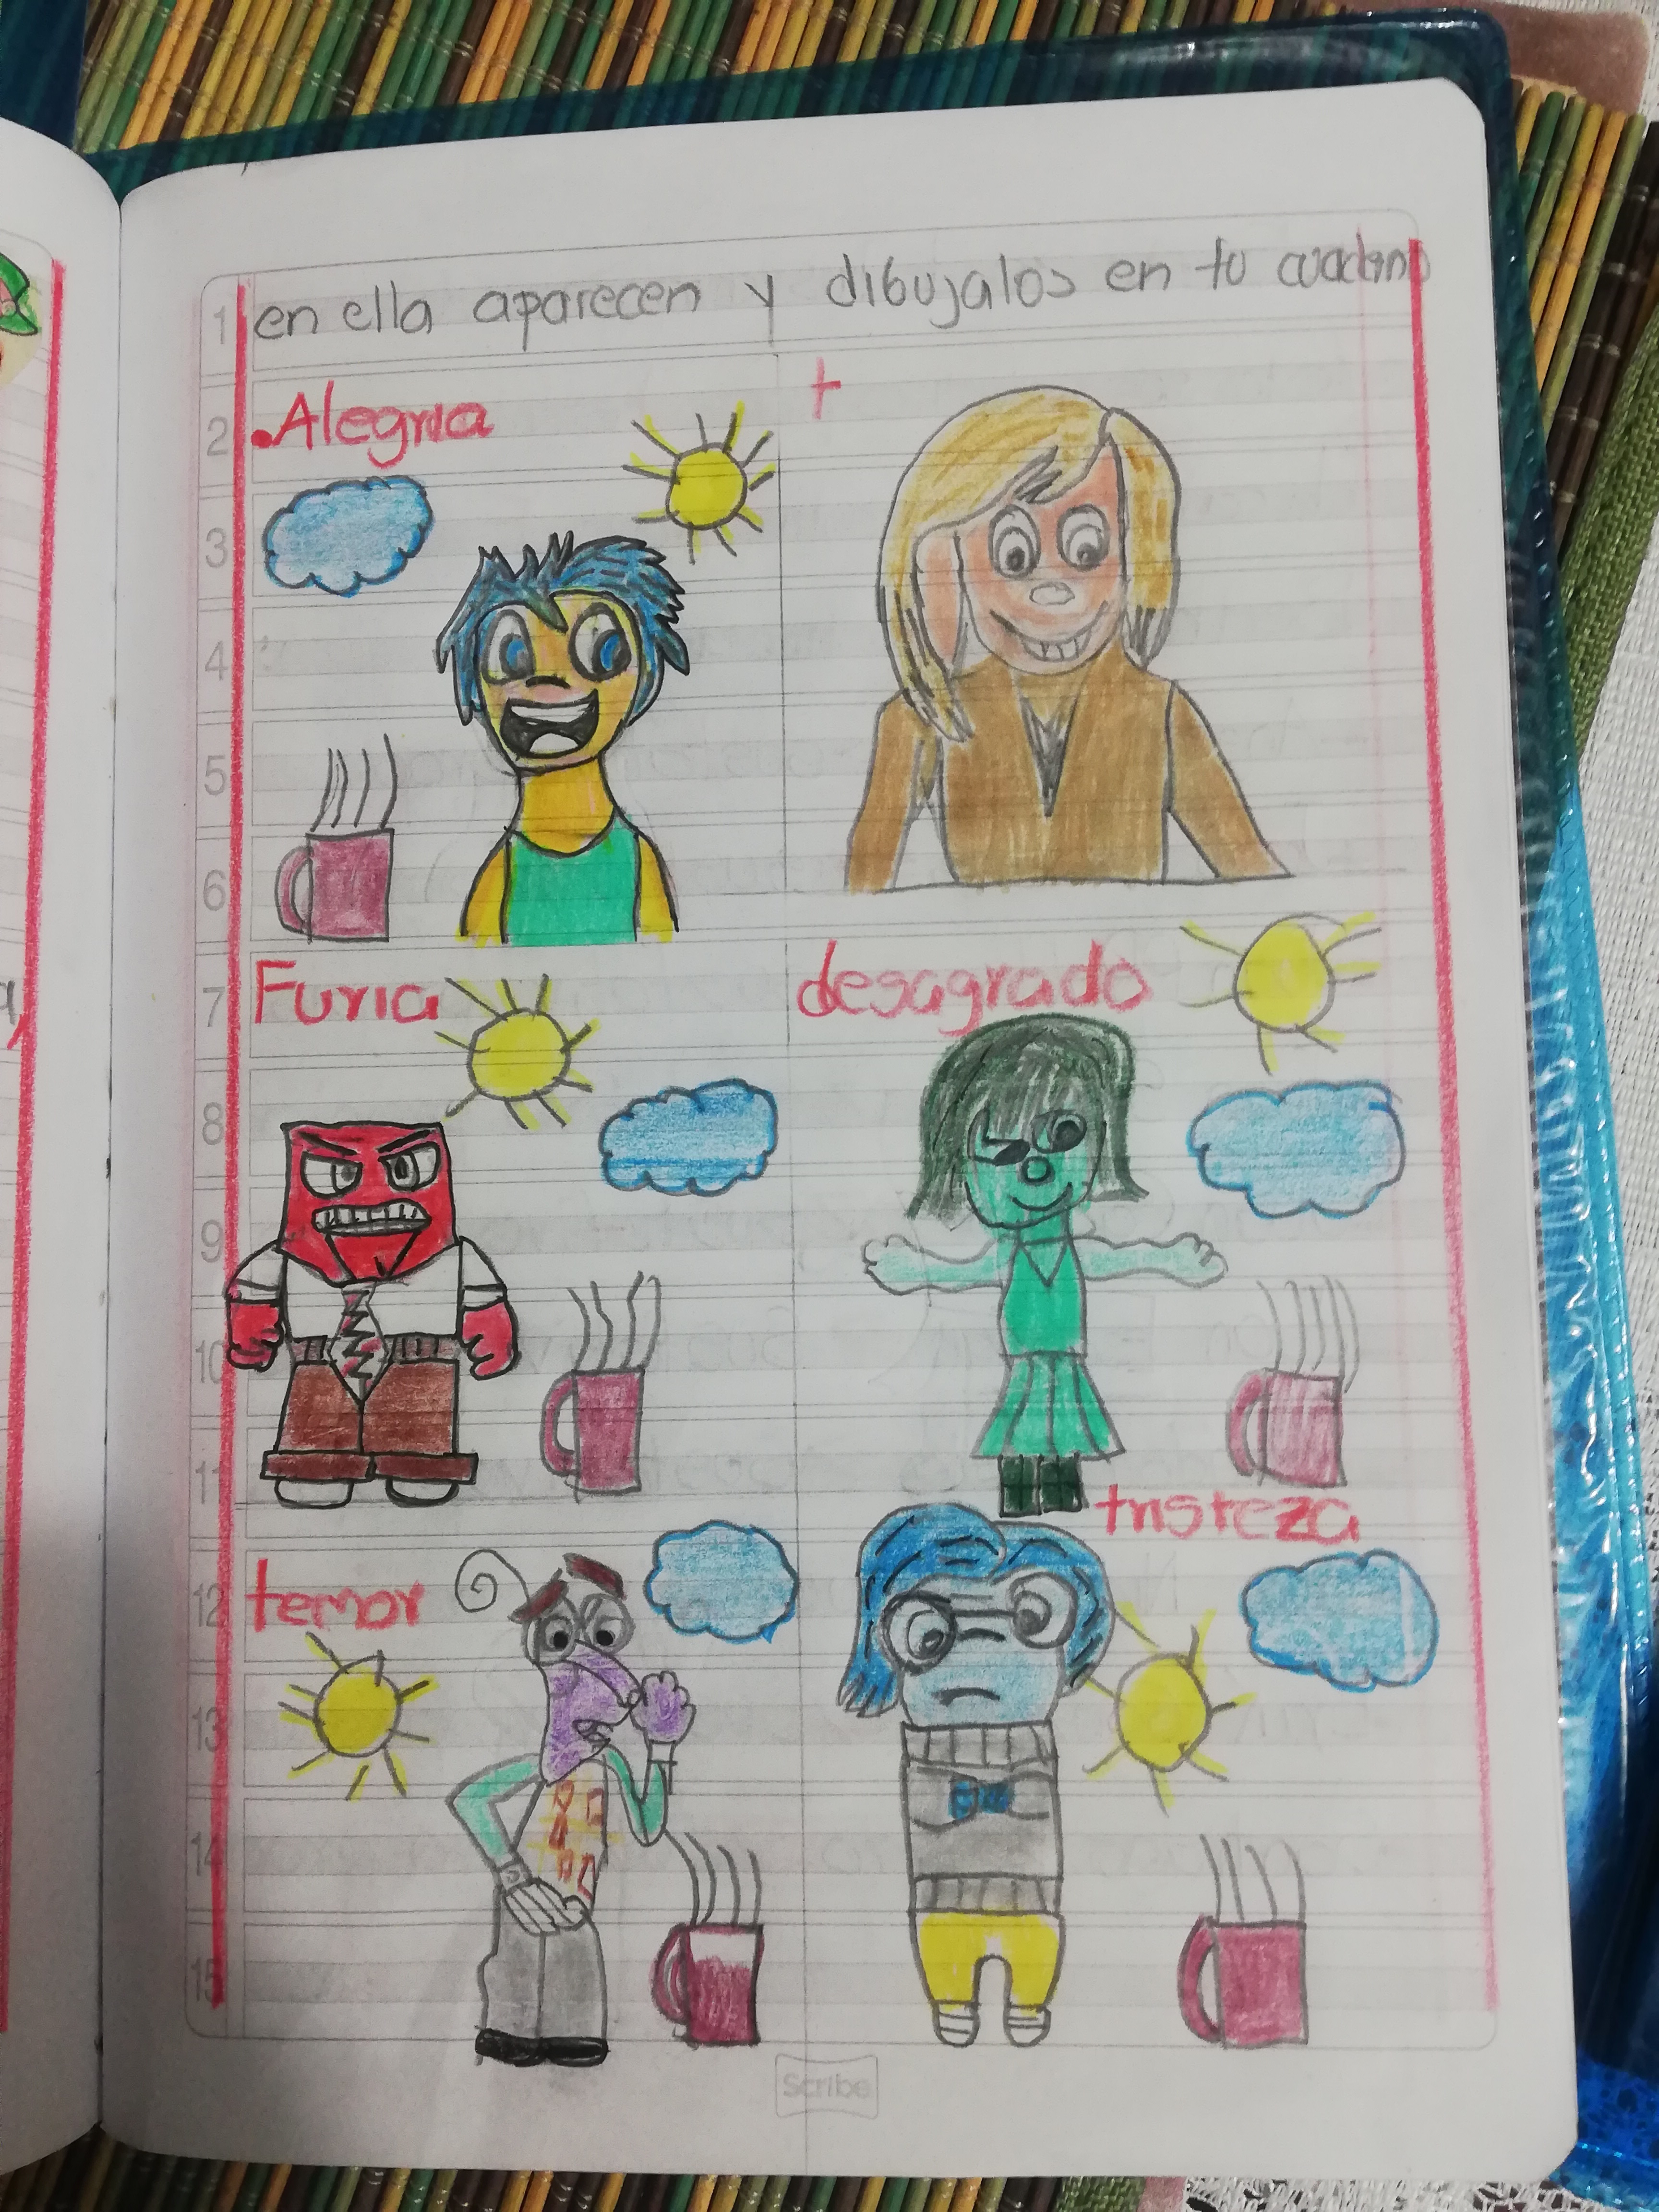 en ella aparecen y dibujalos en tu cuaderno
1
2 .Alegria
3
4
5
6
7 Furia desagrado
8
9
10
11 tristeza
12 temor
13
14
15
Scribe